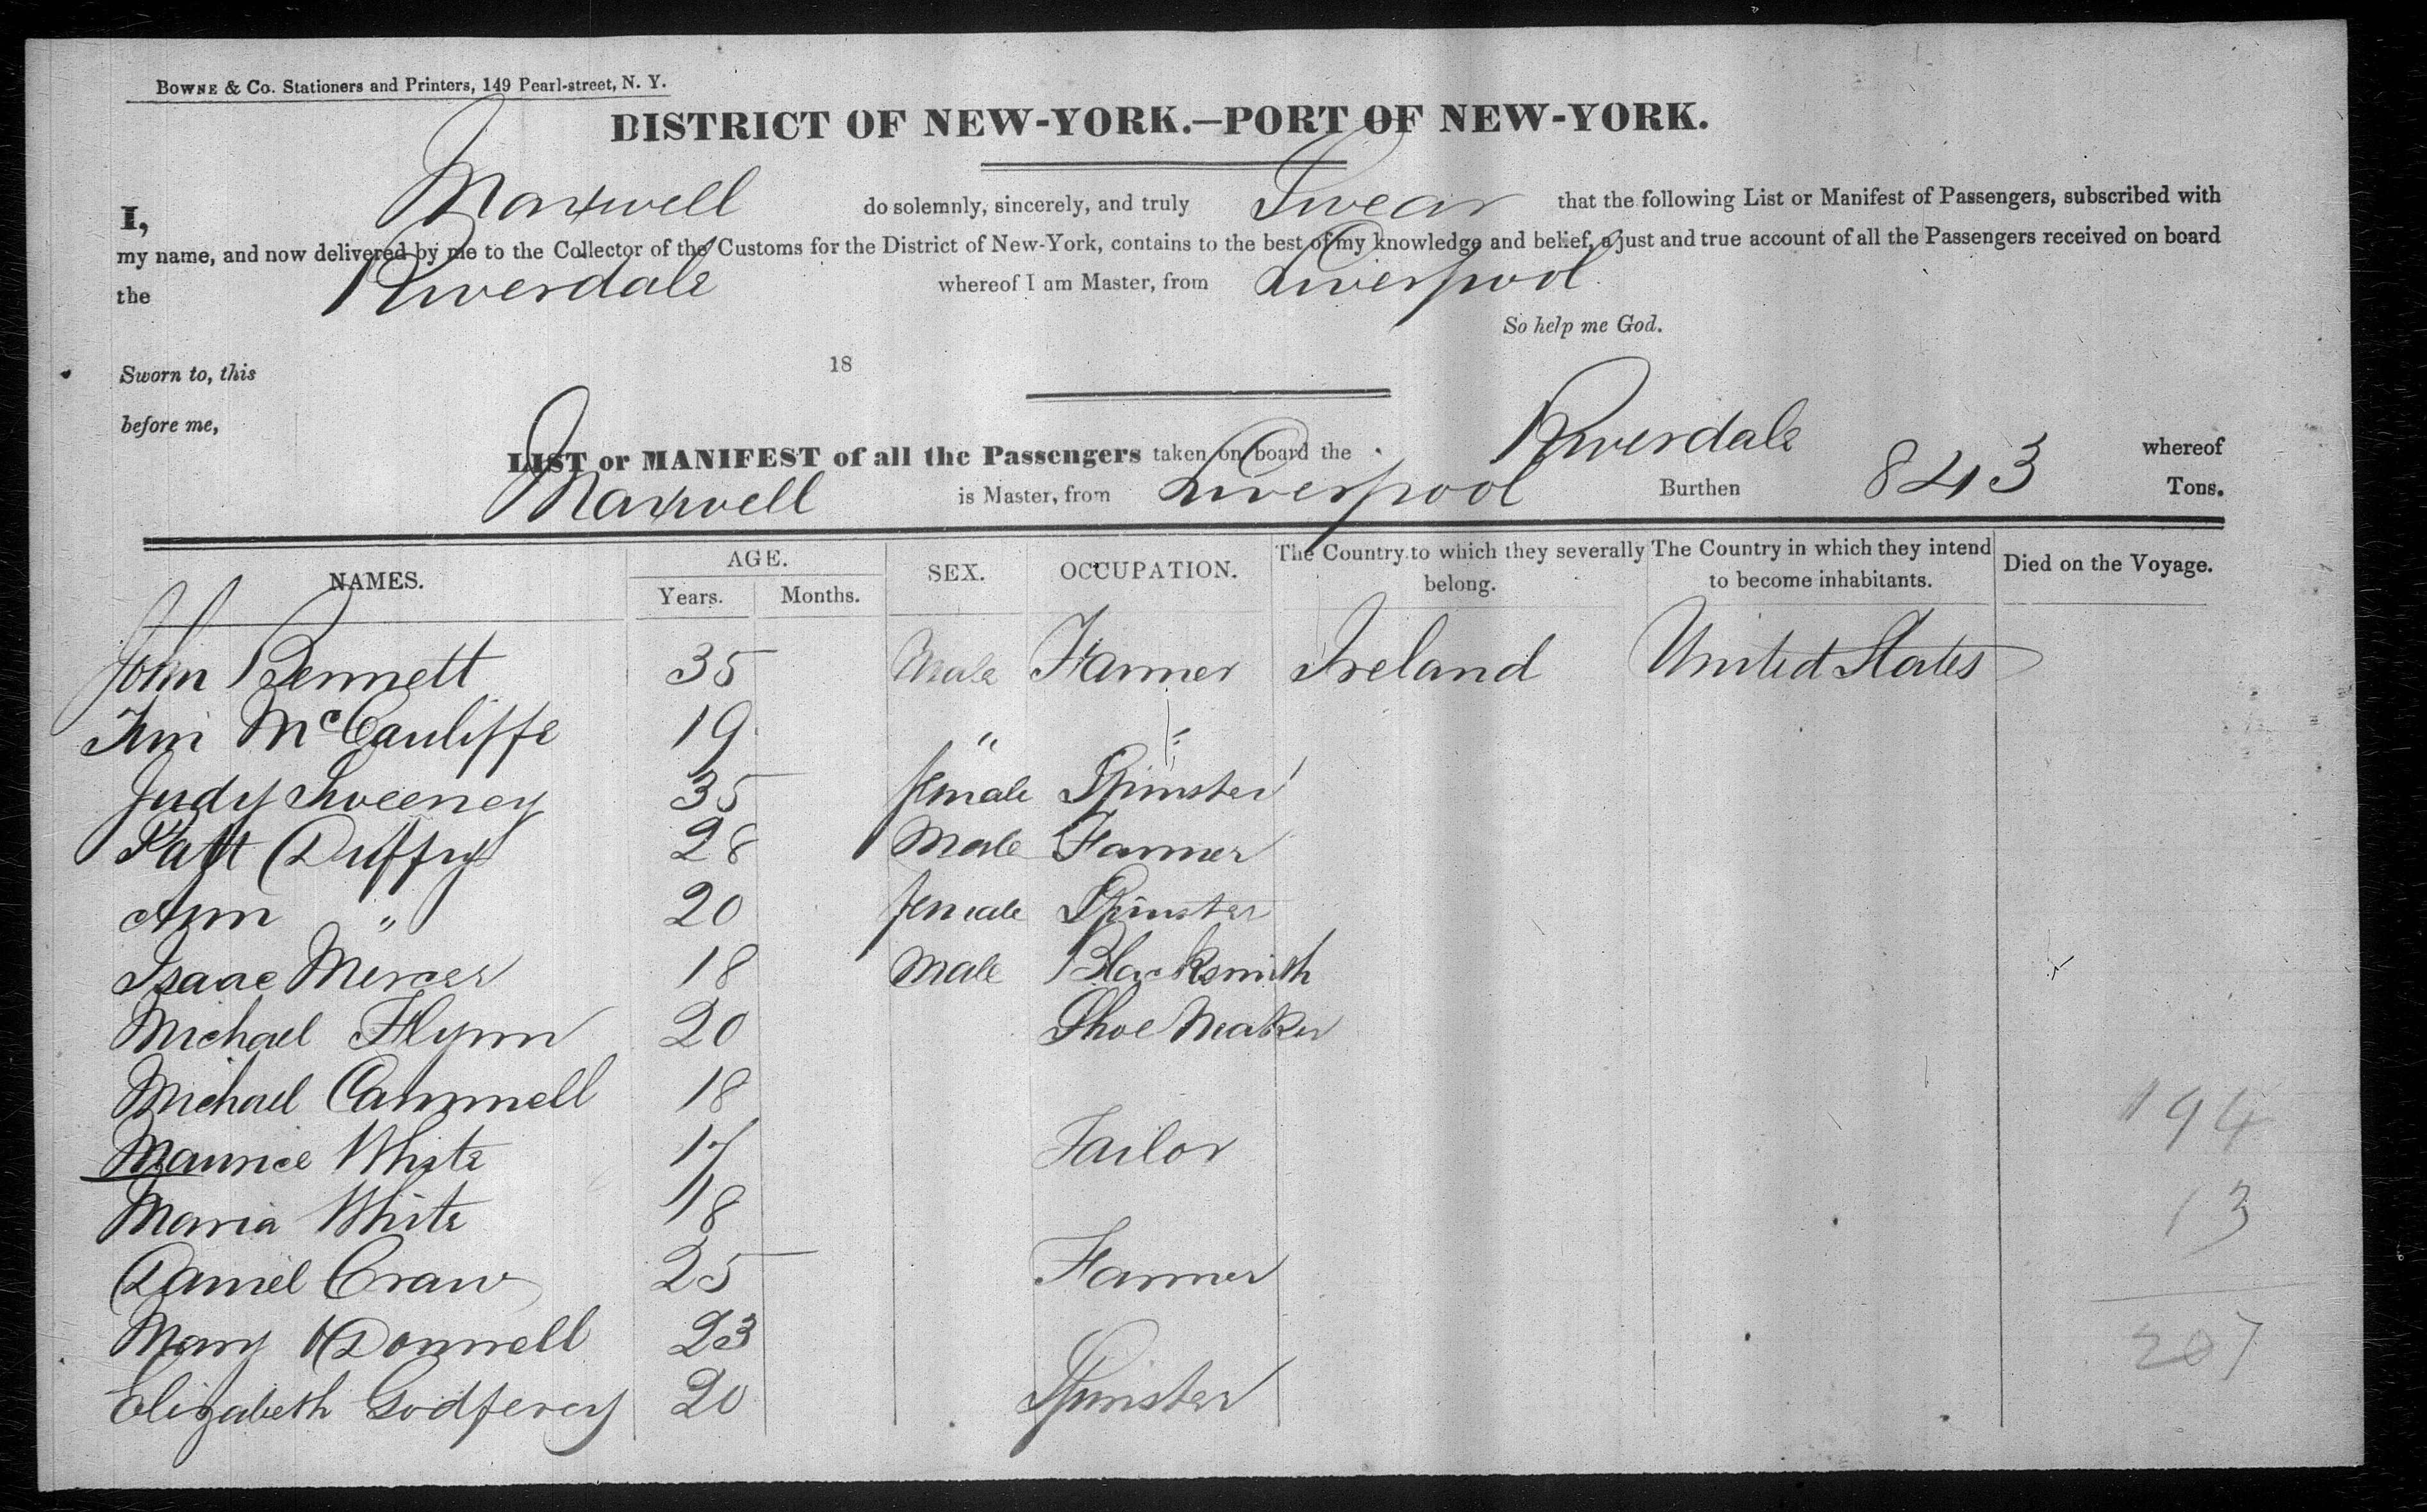 BOWNE & CO. Stationers and Printers, 149 Pearl-street, N. Y.
DISTRICT OF NEW-YORK.—PORT OF NEW-YORK.
I, Maxwell do solemnly, sincerely, and truly Swear that the following List or Manifest of Passengers, subscribed with
my name, and now delivered by me to the Collector of the Customs for the District of New-York, contains to the best of my knowledge and belief, a just and true account of all the Passengers received on board
the Riverdale whereof I am Master, from Liverpool
So help me God.
Sworn to, this 18
before me,
LIST or MANIFEST of all the Passengers taken on board the Riverdale whereof
Maxwell is Master, from Liverpool Burthen 843 Tons.
NAMES. AGE. Years. Months. SEX. OCCUPATION. The Country to which they severally belong. The Country in which they intend to become inhabitants. Died on the Voyage.
John Bennett 35 Male Farmer Ireland United States
Tim McCauliffe 19 " "
Judy Sweeney 35 female Spinster
Patt Duffy 28 Male Farmer
Ann " 20 female Spinster
Isaac Mercer 18 Male Blacksmith
Michael Flynn 20 Shoe Maker
Michael Cammell 18
Maurice White 17 Tailor
Maria White 18
Daniel Craw 25 Farmer
Mary O'Donnell 23
Elizabeth Godferey 20 Spinster
194
13
207